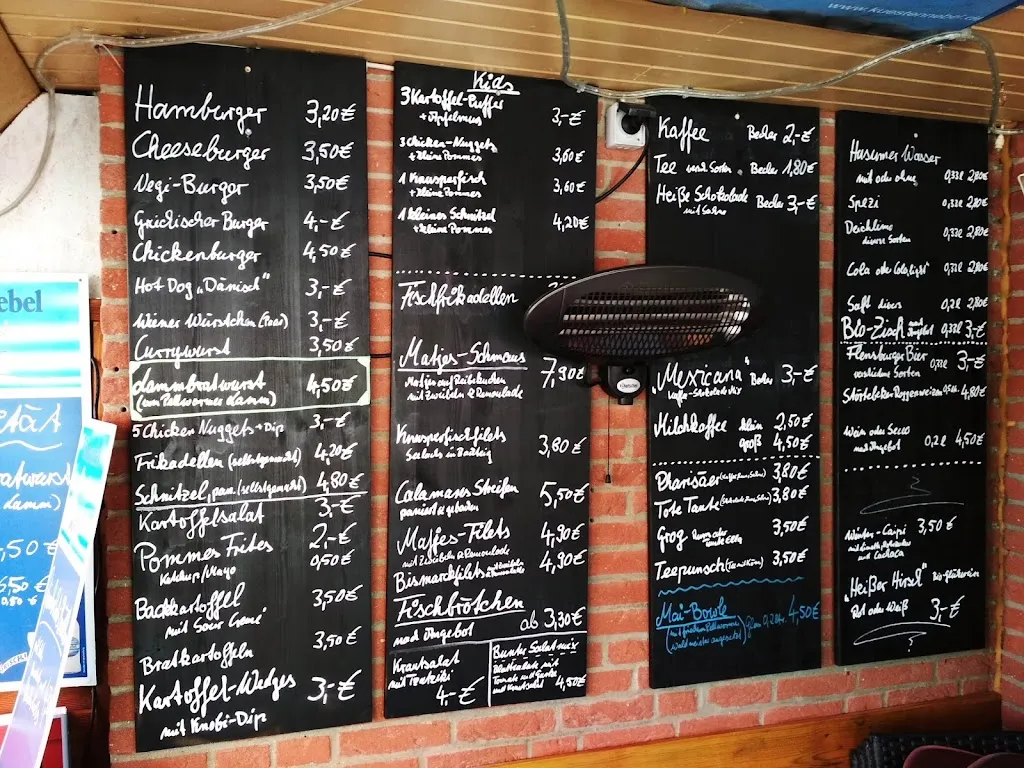 www.kuestennebel.de
Hamburger 3,20€
Cheeseburger 3,50€
Vegi-Burger 3,50€
Griechischer Burger 4.-€
Chickenburger 4,50€
Hot Dog „Dänisch" 3,-€
Wiener Würstchen (Paar) 3,-€
Currywurst 3,50€
Lammbratwurst 4,50€
(vom Pellwormer Lamm)
5 Chicken Nuggets + Dip 3,-€
Frikadellen (selbstgemacht) 4,20€
Schnitzel, pan. (selbstgemacht) 4,80€
Kartoffelsalat 3,-€
Pommes Frites 2,-€
Ketchup/Mayo 0,50€
Backkartoffel 3,50€
mit Sour Creme
Bratkartoffeln 3,50€
Kartoffel-Wedges 3,-€
mit Knobi-Dip
Kids
3 Kartoffel-Puffer 3,-€
+ Apfelmus
3 Chicken-Nuggets 3,60€
+ kleine Pommes
1 Knusperfisch 3,60€
+ kleine Pommes
1 kleines Schnitzel 4,20€
+ kleine Pommes
Fischfrikadellen
Matjes-Schmaus 7,90€
Matjes auf Reibekuchen
mit Zwiebeln & Remoulade
Knusperfischfilets 3,80€
Seelachs in Backteig
Calamares Streifen 5,50€
paniert & gebacken
Matjes-Filets 4,90€
mit Zwiebeln & Remoulade
Bismarckfilets 4,90€
Fischbrötchen
nach Angebot ab 3,30€
Krautsalat
mit Tzatziki
4,-€
Bunter Salat-mix
Blattsalate mit
Tomate und Gurke
und Krautsalat 4,50€
Kaffee Becher 2,-€
Tee versch. Sorten Becher 1,80€
Heiße Schokolade Becher 3,-€
mit Sahne
„Mexicana" Becher 3,-€
Kaffee-Schokolade
Milchkaffee klein 2,50€
groß 4,50€
Pharisäer 3,80€
Tote Tante 3,80€
Grog 3,50€
Teepunsch 3,50€
Mai-Bowle 4,50€
Husumer Wasser
mit oder ohne 0,33l 2,80€
Spezi 0,33l 2,80€
Deichlimo 0,33l 2,80€
diverse Sorten
Cola oder Cola light 0,33l 2,80€
Saft divers 0,2l 2,80€
Bio-Zisch 0,33l 3,-€
Flensburger Bier 0,33l 3,-€
verschiedene Sorten
Störtebeker Roggenweizen 0,5l 4,80€
Wein oder Secco
nach Angebot 0,2l 4,50€
Winter-Caipi 3,50€
„Heißer Hirsch"
Rot oder Weiß 3,-€